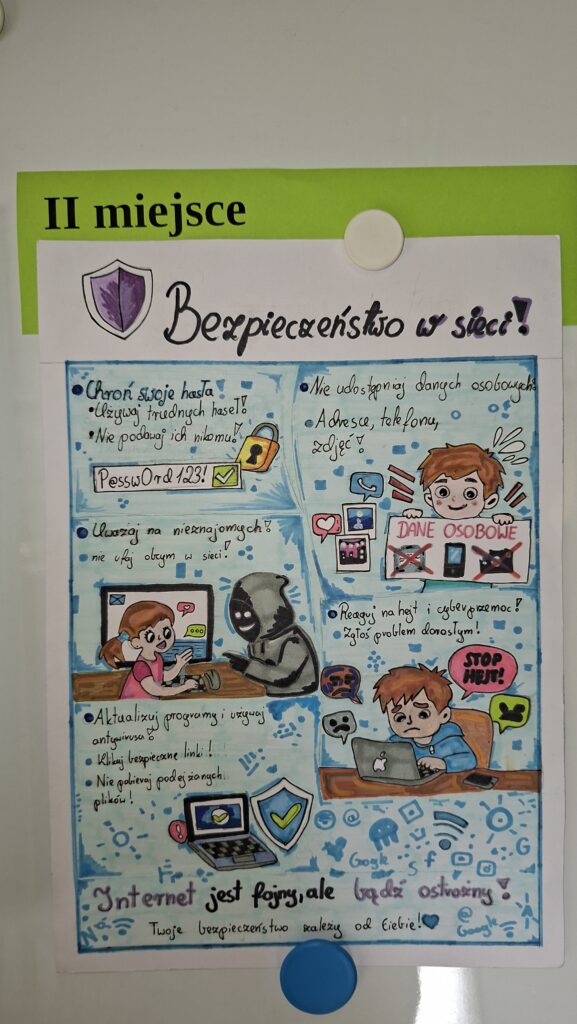 II miejsce
Bezpieczeństwo w sieci!
Chroń swoje hasła!
Używaj trudnych haseł!
Nie podawaj ich nikomu!
P@ssw0rd123!
Nie udostępniaj danych osobowych!
Adresu, telefonu,
zdjęć!
DANE OSOBOWE
Uważaj na nieznajomych!
nie ufaj obcym w sieci!
Reaguj na hejt i cyberprzemoc!
Zgłoś problem dorosłym!
STOP
HEJT!
Aktualizuj programy i używaj
antywirusa!
Klikaj bezpieczne linki!
Nie pobieraj podejrzanych
plików!
Google
G
S f
Internet jest fajny, ale bądź ostrożny!
Twoje bezpieczeństwo zależy od Ciebie!
@
Google